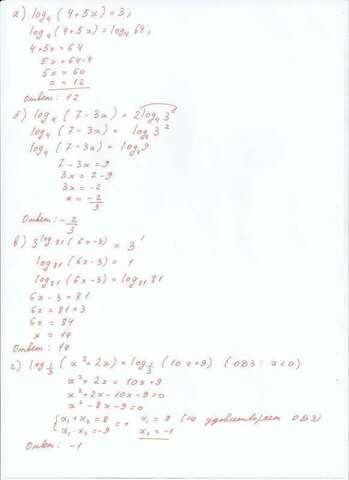 а) log₄(4+5x)=3;
log₄(4+5x)=log₄64;
4+5x=64
5x=64-4
5x=60
x=12
Ответ: 12
б) log₄(7-3x)=2log₄3
log₄(7-3x)=log₄3²
log₄(7-3x)=log₄9
7-3x=9
3x=7-9
3x=-2
x=-2/3
Ответ: -2/3
в) 3^log₈₁(6x-3)=3¹
log₈₁(6x-3)=1
log₈₁(6x-3)=log₈₁81
6x-3=81
6x=81+3
6x=84
x=14
Ответ: 14
г) log_1/3(x²+2x)=log_1/3(10x+9) (ОВЗ: x<0)
x²+2x=10x+9
x²+2x-10x-9=0
x²-8x-9=0
{x₁+x₂=8 => x₁=9 (не удовлетворяет ОВЗ)
x₁·x₂=-9 x₂=-1
Ответ: -1